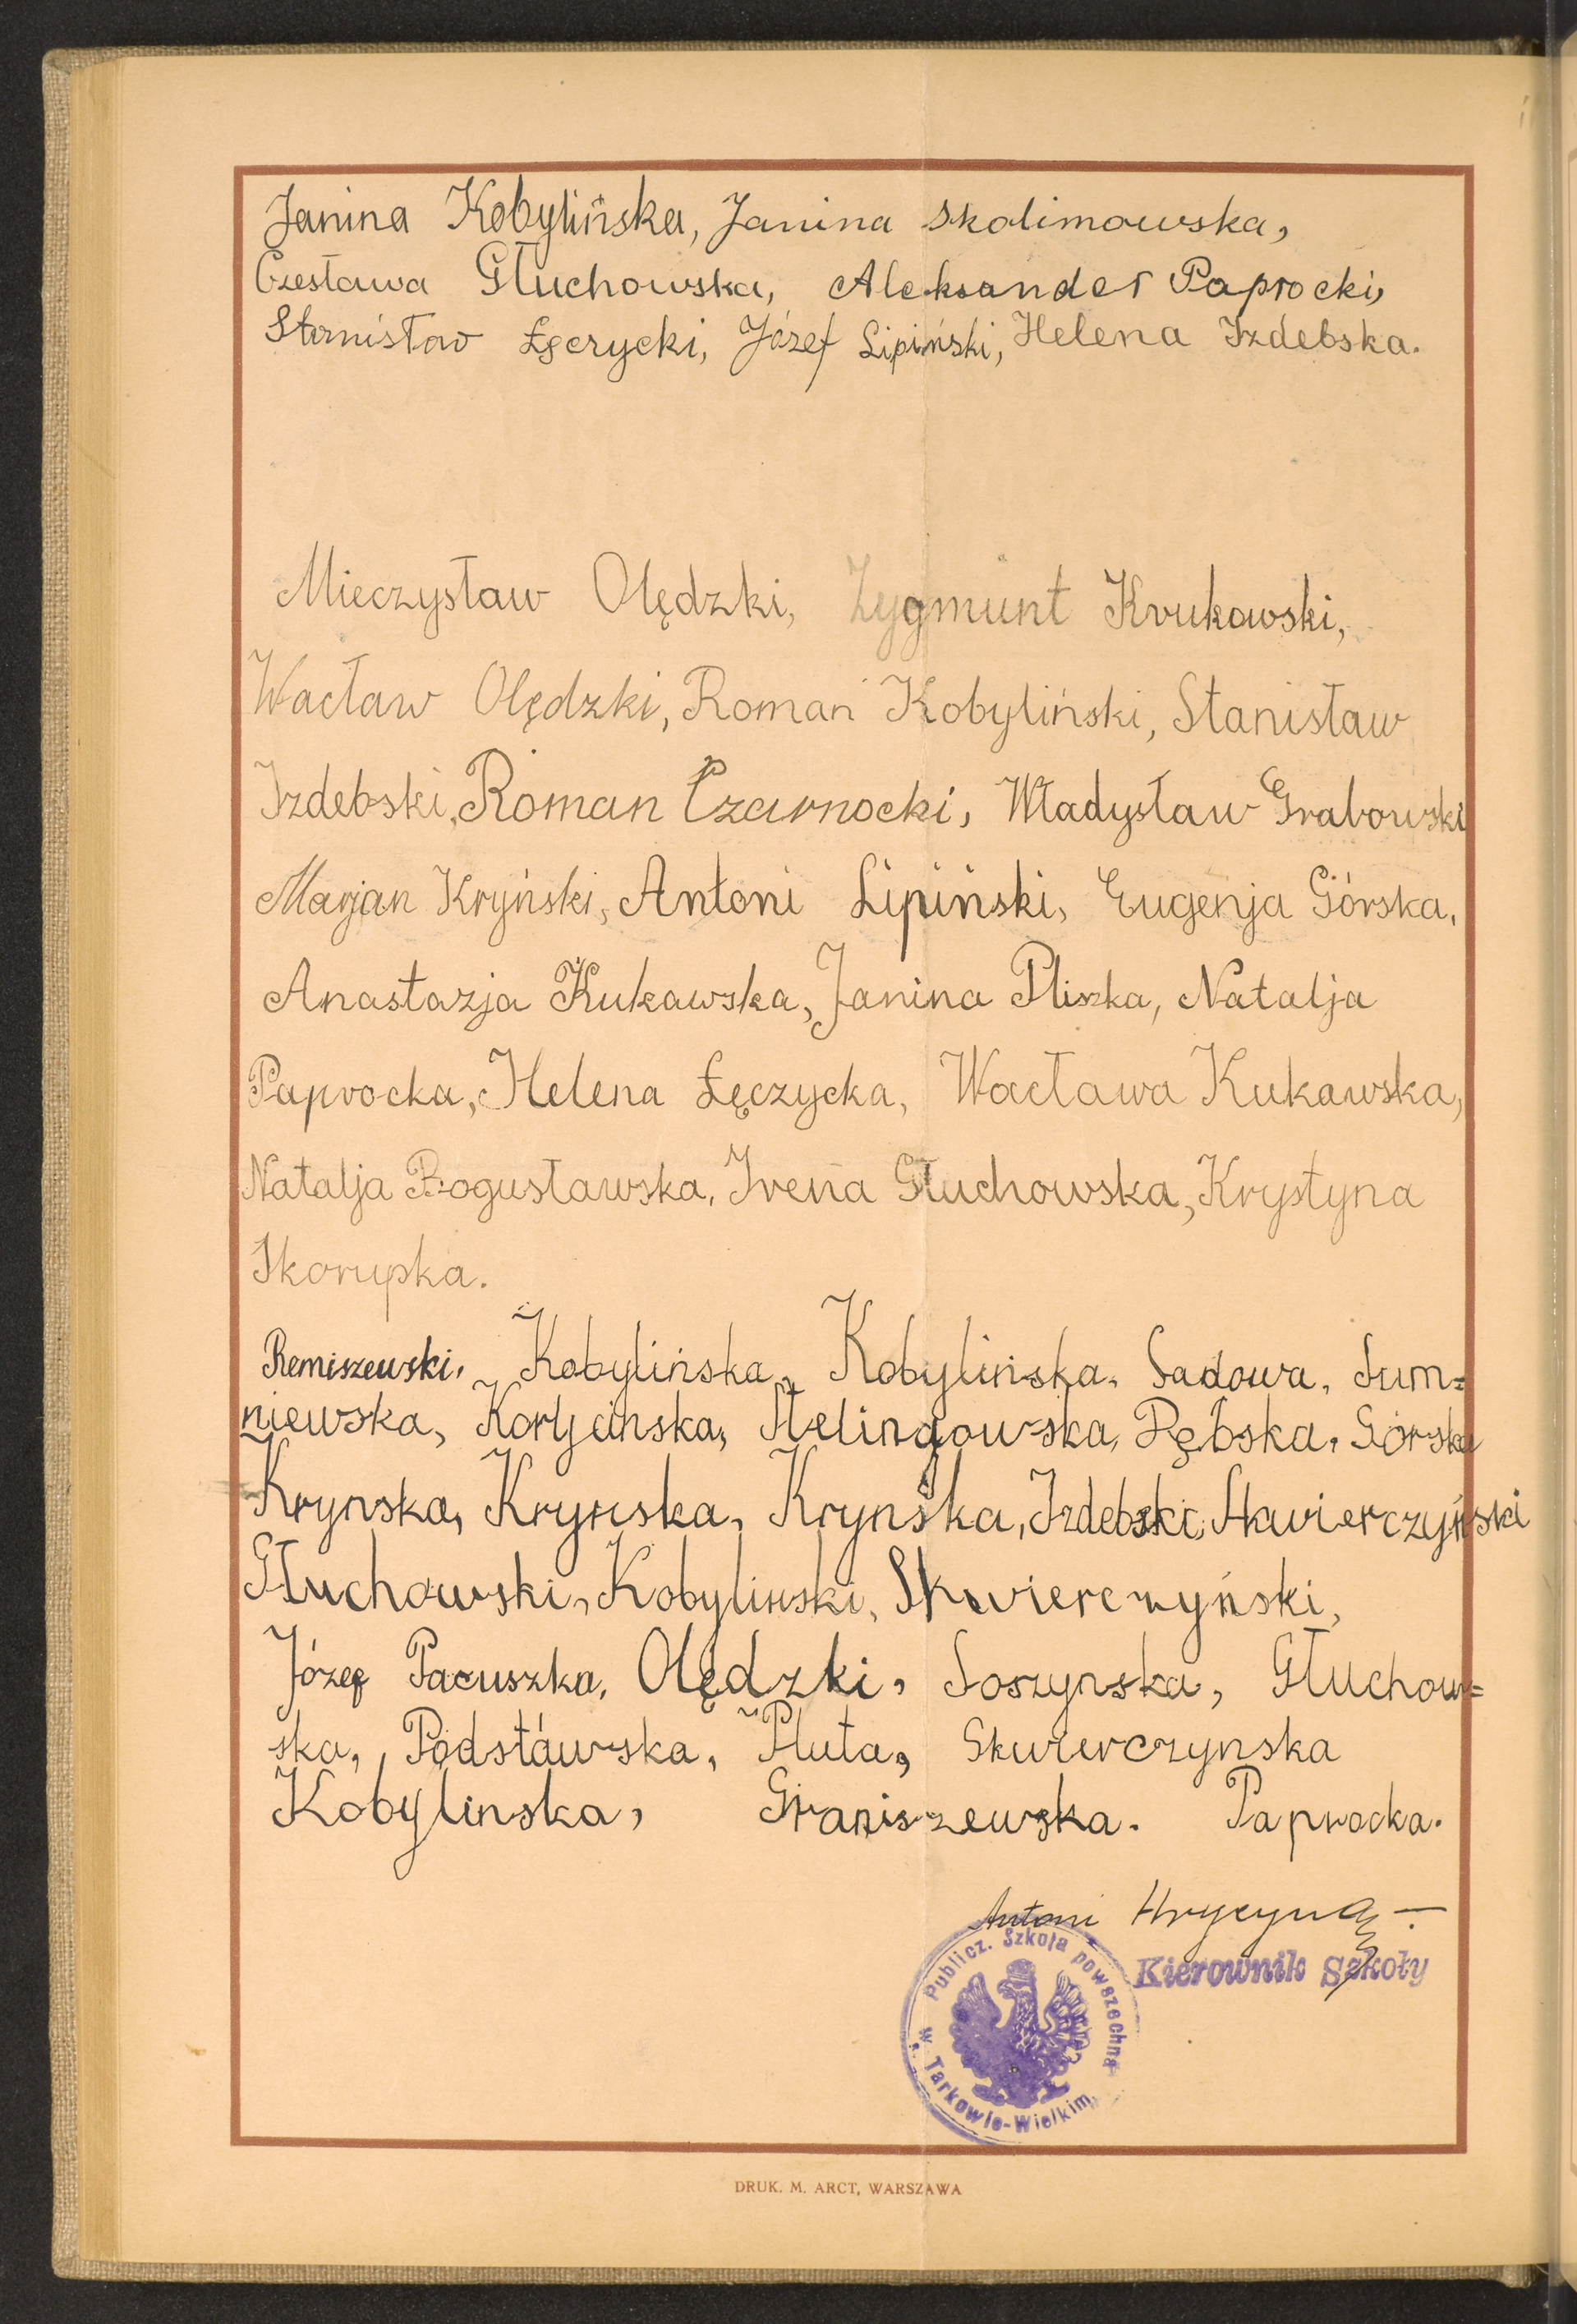 Janina Kobylińska, Janina Skolimowska,
Czesława Głuchowska, Aleksander Paprocki,
Stanisław Łęczycki, Józef Lipiński, Helena Izdebska.
Mieczysław Olędzki, Zygmunt Krukowski,
Wacław Olędzki, Roman Kobyliński, Stanisław
Izdebski, Roman Czarnocki, Władysław Grabowski
Marjan Kryński, Antoni Lipiński, Eugenja Górska,
Anastazja Kukawska, Janina Pliszka, Natalja
Paprocka, Helena Łęczycka, Wacława Kukawska,
Natalja Bogusławska, Irena Głuchowska, Krystyna
Skorupska.
Remiszewski, Kobylińska, Kobylińska, Sadowa, Sum=
niewska, Korycinska, Stelingowska, Dębska, Górska
Krynska, Krynska, Krynska, Izdebski, Skwierczyński
Głuchowski, Kobylinski, Skwierczyński,
Józef Pacuszka, Olędzki, Soszynska, Głuchow=
ska, Podstawska, Pluta, Skwierczynska
Kobylinska, Graniszewska. Paprocka.
Antoni
Kierownik Szkoły
Publicz. Szkoła powszechna
w Tarkowie-Wielkim
DRUK. M. ARCT, WARSZAWA